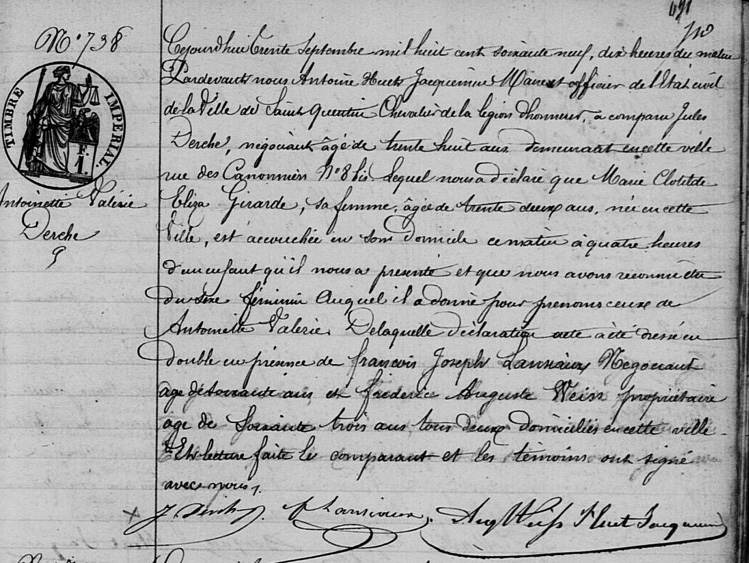 N° 738
TIMBRE IMPERIAL
Antoinette Valérie
Derche
9
Cejourdhui trente Septembre mil huit cent soixante neuf, dix heures du matin
Pardevant nous Antoine Huet Jacquemin Maire et officier de l'Etat civil
de la Ville de Saint Quentin Chevalier de la legion dhonneur, a comparu Jules
Derche, négociant âgé de trente huit ans demeurant en cette ville
rue des Canonniers N° 8 bis Lequel nous a déclaré que Marie Clotilde
Eliza Girarde, sa femme, âgée de trente deux ans, née en cette
Ville, est accouchée en son domicile ce matin à quatre heures
d'un enfant qu'il nous a présenté et que nous avons reconnu être
du sexe féminin Auquel il a donné pour prénoms ceux de
Antoinette Valérie. De laquelle déclaration acte a été dressé en
double en présence de françois Joseph Negociant
age de soixante ans et Frédéric Auguste Weiss propriétaire
age de Soixante trois ans tous deux domiciliés en cette ville.
Et lecture faite le comparant et les témoins ont signé
avec nous.
J. Derche Aug Weiss Huet Jacquemin